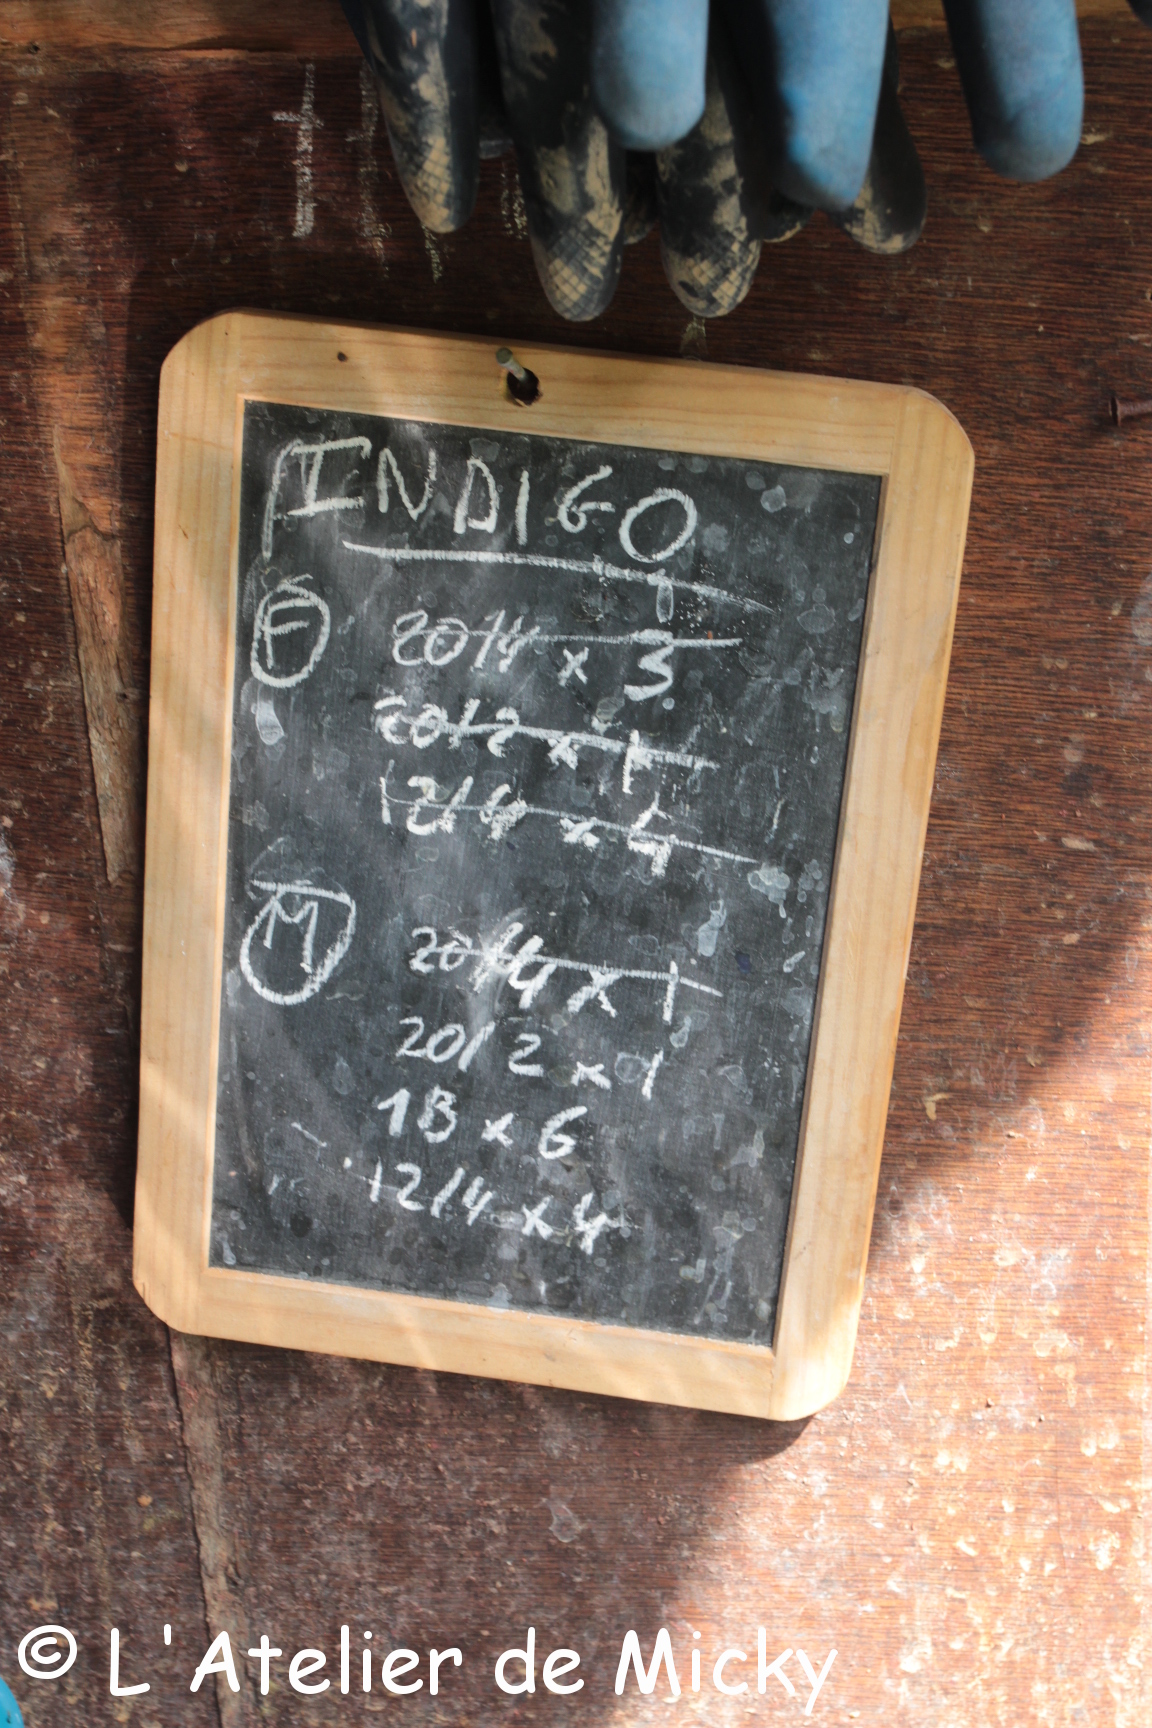 INDIGO
F 20/4 x 3
20/2 x 1
12/4 x 4
M 20/4 x 1
20/2 x 1
18 x 6
12/4 x 4
© L'Atelier de Micky